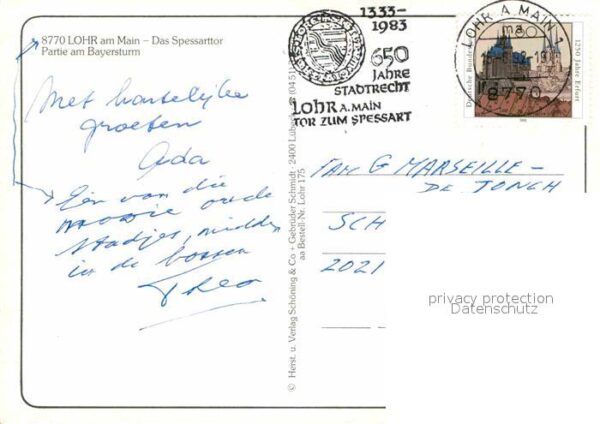 8770 LOHR am Main – Das Spessarttor
Partie am Bayersturm
Met hartelijke
groeten
Ada
Een van die
mooie oude
stadjes, midden
in de bossen
Theo
© Herst. u. Verlag Schöning & Co + Gebrüder Schmidt, 2400 Lübeck
aa Bestell-Nr. Lohr 175
1333-
1983
650
JAHRE
STADTRECHT
LOHR A. MAIN
TOR ZUM SPESSART
LOHR A. MAIN 1
8770
Deutsche Bundespost
1250 Jahre Erfurt
FAM G MARSEILLE –
DE JONGH
SCH
2021
privacy protection
Datenschutz